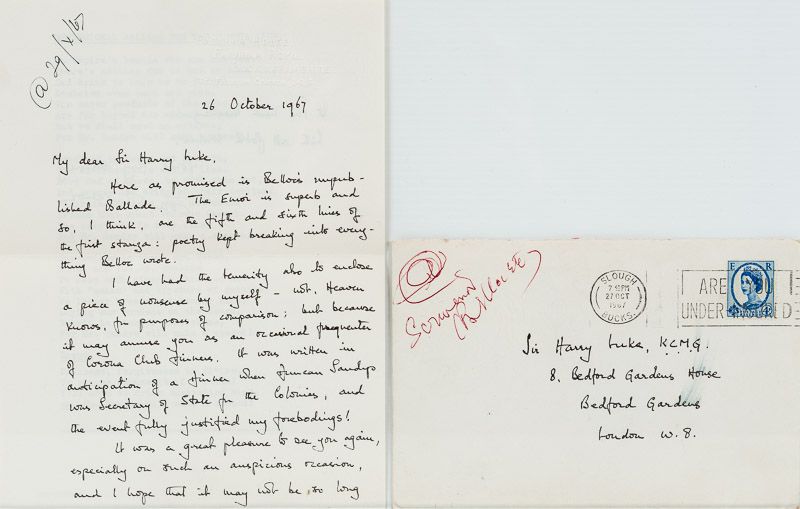 @ 29/X/67
26 October 1967
My dear Sir Harry Luke,
Here as promised is Belloc's unpub-
lished Ballade. The Envoi is superb and
so, I think, are the fifth and sixth lines of
the first stanza: poetry kept breaking into every-
thing Belloc wrote.
I have had the temerity also to enclose
a piece of nonsense by myself - not, Heaven
knows, for purposes of comparison; but because
it may amuse you as an occasional frequenter
of Corona Club dinners. It was written in
anticipation of a dinner when Duncan Sandys
was Secretary of State for the Colonies, and
the event fully justified my forebodings!
It was a great pleasure to see you again,
especially on such an auspicious occasion,
and I hope that it may not be so long
SLOUGH
7 15PM
27 OCT
1967
BUCKS.
ARE
UNDER
E R
Sir Harry Luke, K.C.M.G.
8, Bedford Gardens House
Bedford Gardens
London W.8.